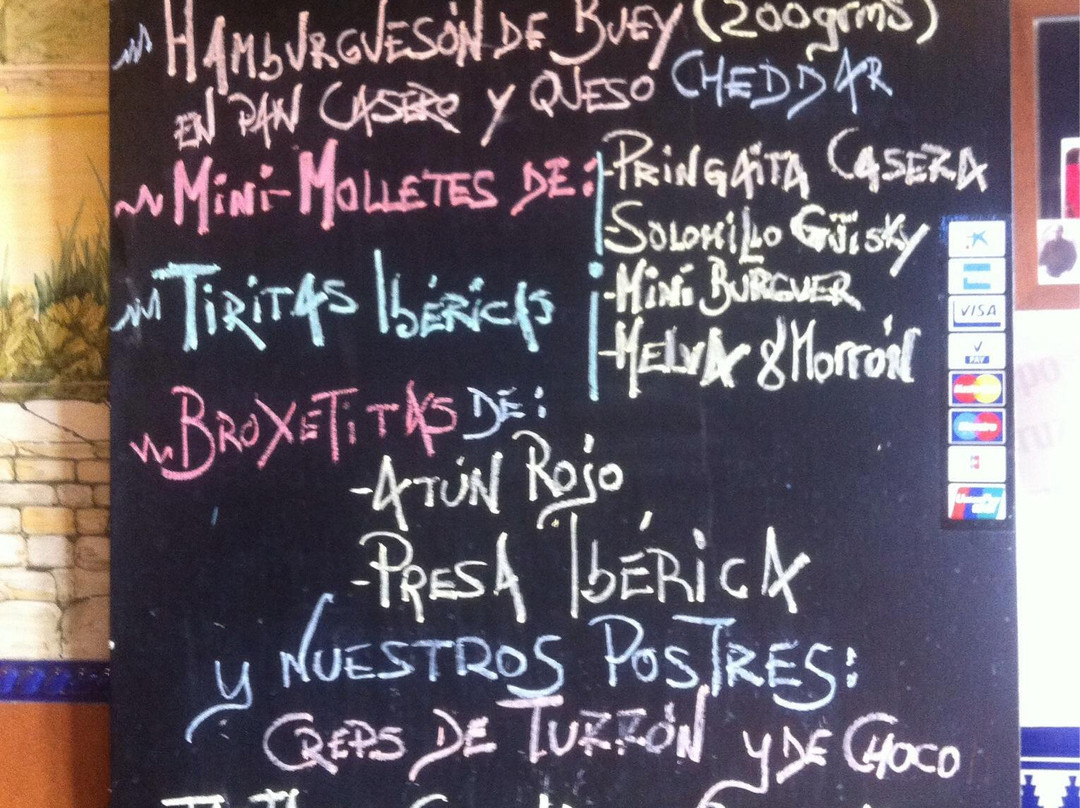 HAMBURGUESÓN DE BUEY (200grms)
EN PAN CASERO Y QUESO CHEDDAR
MiNi-MOLLETES DE:
-PRINGAITA CASERA
-SOLOMILLO GÜISKY
-MINI BURGUER
-MELVA & MORRÓN
TIRITAS IBÉRICAS
BROXETITAS DE:
-ATÚN ROJO
-PRESA IBÉRICA
y NUESTROS POSTRES:
CREPS DE TURRÓN y DE CHOCO
VISA
V PAY
MasterCard
Maestro